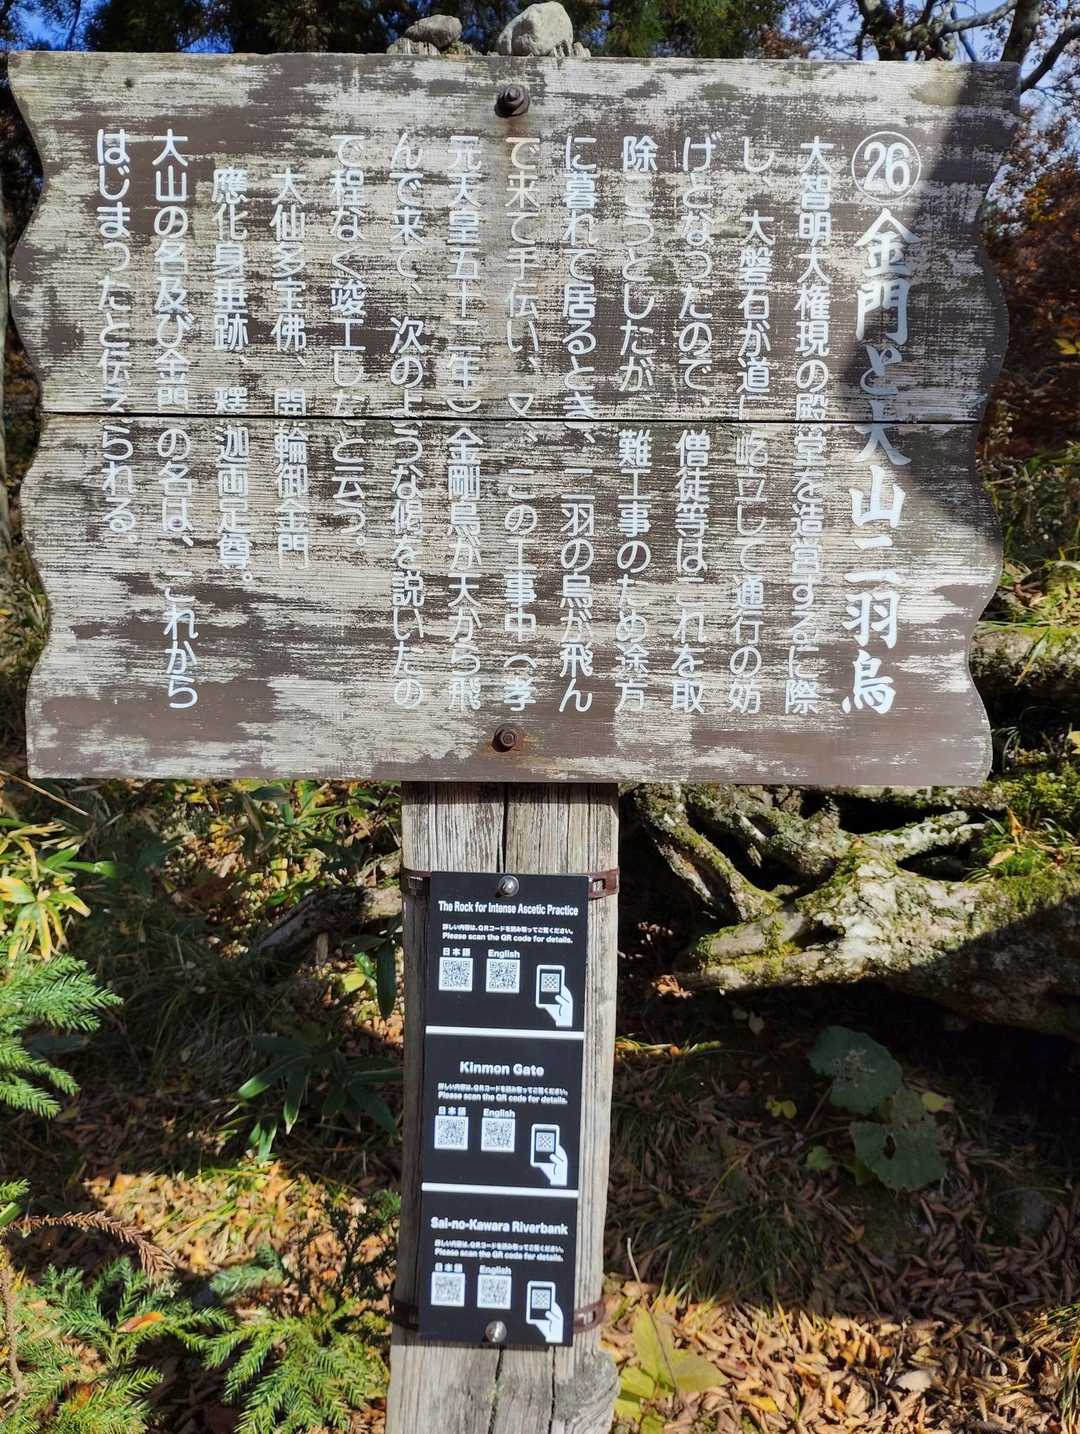 ㉖金門と大山二羽烏
大智明大権現の殿堂を造営するに際
し、大磐石が道に屹立して通行の妨
げとなったので、僧徒等はこれを取
除こうとしたが、難工事のため途方
に暮れて居るとき、二羽の烏が飛ん
で来て手伝い、又、この工事中(孝
元天皇五十二年)金剛鳥が天から飛
んで来て、次のような偈を説いたの
で程なく竣工したと云う。
大仙多宝佛、開輪御金門
應化身垂跡、釋迦両足尊。
大山の名及び金門の名は、これから
はじまったと伝えられる。
The Rock for Intense Ascetic Practice
詳しい内容は、QRコードを読み取ってご覧ください。
Please scan the QR code for details.
日本語 English
Kinmon Gate
詳しい内容は、QRコードを読み取ってご覧ください。
Please scan the QR code for details.
日本語 English
Sai-no-Kawara Riverbank
詳しい内容は、QRコードを読み取ってご覧ください。
Please scan the QR code for details.
日本語 English